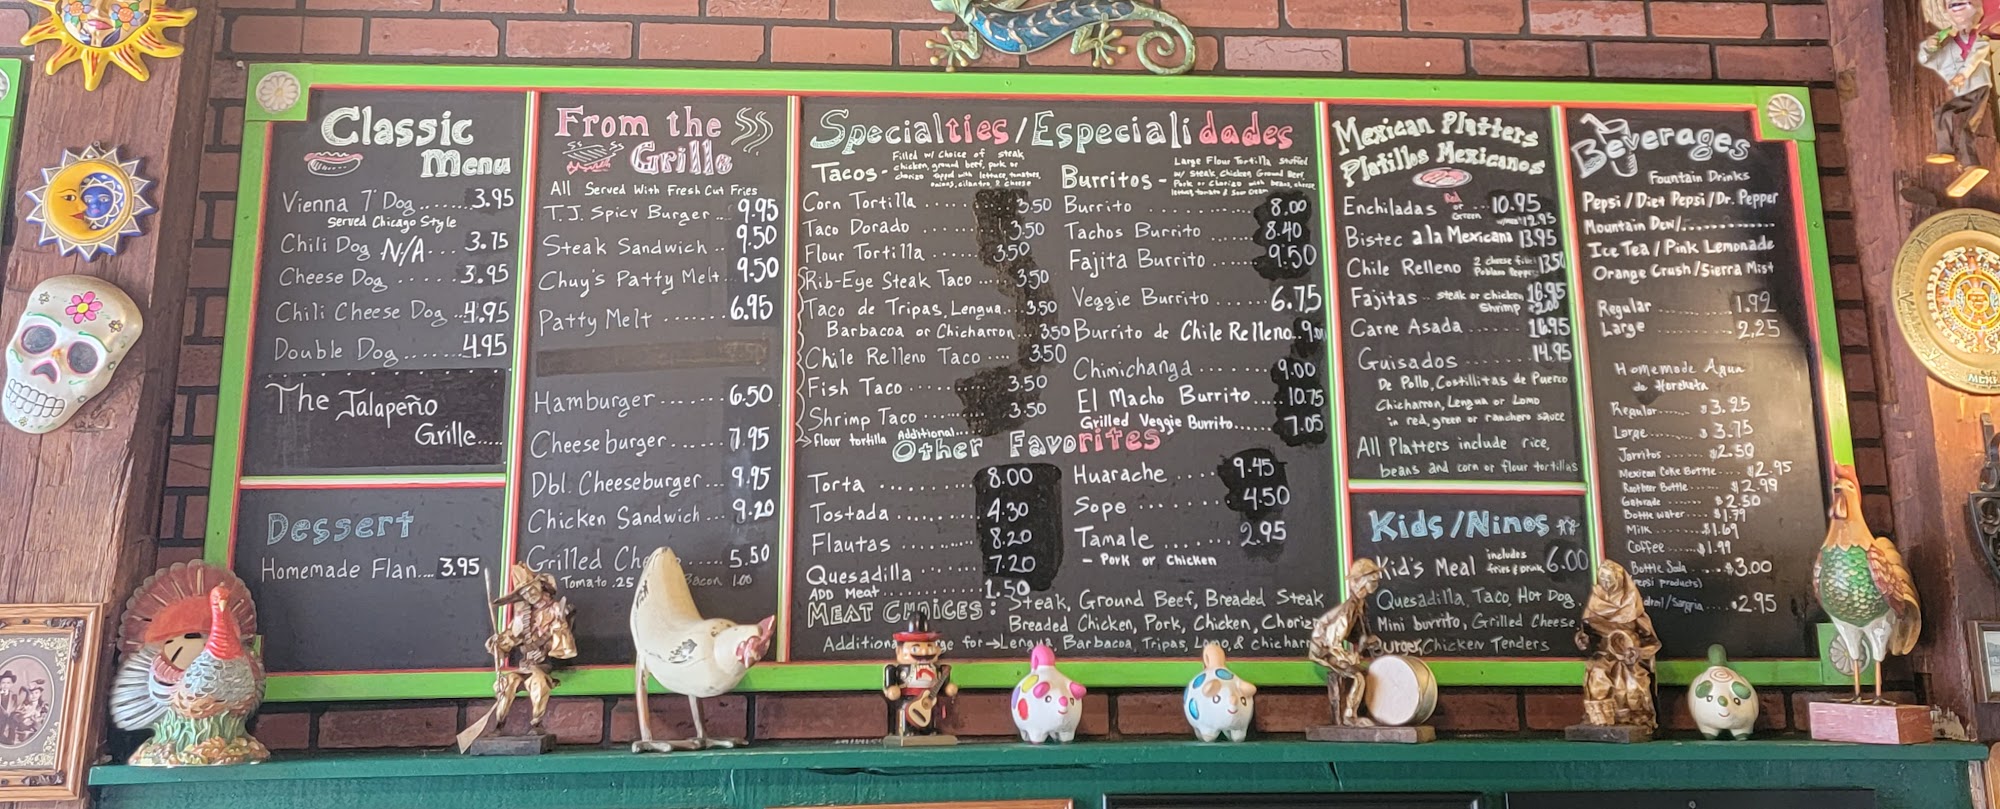 Classic
Menu
Vienna 7" Dog ...... 3.95
Served Chicago Style
Chili Dog N/A ... 3.75
Cheese Dog ...... 3.95
Chili Cheese Dog ..4.95
Double Dog ...... 4.95
The Jalapeño
Grille.....
Dessert
Homemade Flan.... 3.95
From the
Grille
All Served With Fresh Cut Fries
T.J. Spicy Burger .. 9.95
Steak Sandwich .. 9.50
Chuy's Patty Melt . 9.50
Patty Melt ....... 6.95
Hamburger ....... 6.50
Cheeseburger....... 7.95
Dbl. Cheeseburger ... 9.95
Chicken Sandwich ... 9.20
Grilled Che 5.50
Tomato .25 Bacon 1.00
Specialties/Especialidades
Tacos-
Filled w/ choice of steak
chicken, ground beef, pork or
chorizo topped with lettuce, tomatoes,
onions, cilantro & cheese
Corn Tortilla ........ 3.50
Taco Dorado ........ 3.50
Flour Tortilla ....... 3.50
Rib-Eye Steak Taco .... 3.50
Taco de Tripas, Lengua.. 3.50
Barbacoa or Chicharron 3.50
Chile Relleno Taco .... 3.50
Fish Taco ........ 3.50
Shrimp Taco ........ 3.50
Flour tortilla Additional......
Burritos -
Large Flour Tortilla stuffed
w/ Steak Chicken Ground Beef,
Pork or Chorizo with beans, cheese,
lettuce, tomato & Sour Cream
Burrito ............ 8.00
Tachos Burrito ....... 8.40
Fajita Burrito ....... 9.50
Veggie Burrito ...... 6.75
Burrito de Chile Relleno..
Chimichanga ....... 9.00
El Macho Burrito.... 10.75
Grilled Veggie Burrito..... 7.05
Other Favorites
Torta ........... 8.00
Tostada ......... 4.30
Flautas ......... 8.20
Quesadilla ...... 7.20
ADD Meat............ 1.50
Huarache .... 9.45
Sope ........ 4.50
Tamale ....... 2.95
- Pork or Chicken
MEAT CHOICES: Steak, Ground Beef, Breaded Steak
Breaded Chicken, Pork, Chicken, Choriz
Additiona ge for → Lengua, Barbacoa, Tripas, Lomo, & chichar
Mexican Platters
Platillos Mexicanos
Enchiladas Red or Green ... 10.95
12.95
Bistec a la Mexicana 13.95
Chile Relleno 2 cheese filled Poblano Peppers 13.50
Fajitas -- steak or chicken 16.95
Shrimp
Carne Asada ........ 16.95
Guisados ......... 14.95
De Pollo, Costillitas de Puerco
Chicharron, Lengua or Lomo
in red, green or ranchero sauce
All Platters include rice,
beans and corn or flour tortillas
Kids/Ninos
Kid's Meal includes fries & drink 6.00
Quesadilla, Taco, Hot Dog
Mini burrito, Grilled Cheese,
urger, Chicken Tenders
Beverages
Fountain Drinks
Pepsi/Diet Pepsi/Dr. Pepper
Mountain Dew/...............
Ice Tea/Pink Lemonade
Orange Crush/Sierra Mist
Regular ........... 1.92
Large ............. 2.25
Homemade Agua
de Horchata
Regular....... $3.25
Large.......... $3.75
Jarritos........ $2.50
Mexican Coke Bottle.... $2.95
Rootbeer Bottle...... $2.99
Gatorade ...... $2.50
Bottle water .... $1.79
Milk ......... $1.69
Coffee...... $1.99
Bottle Soda ...... $3.00
epsi products)
/Sangria .... $2.95